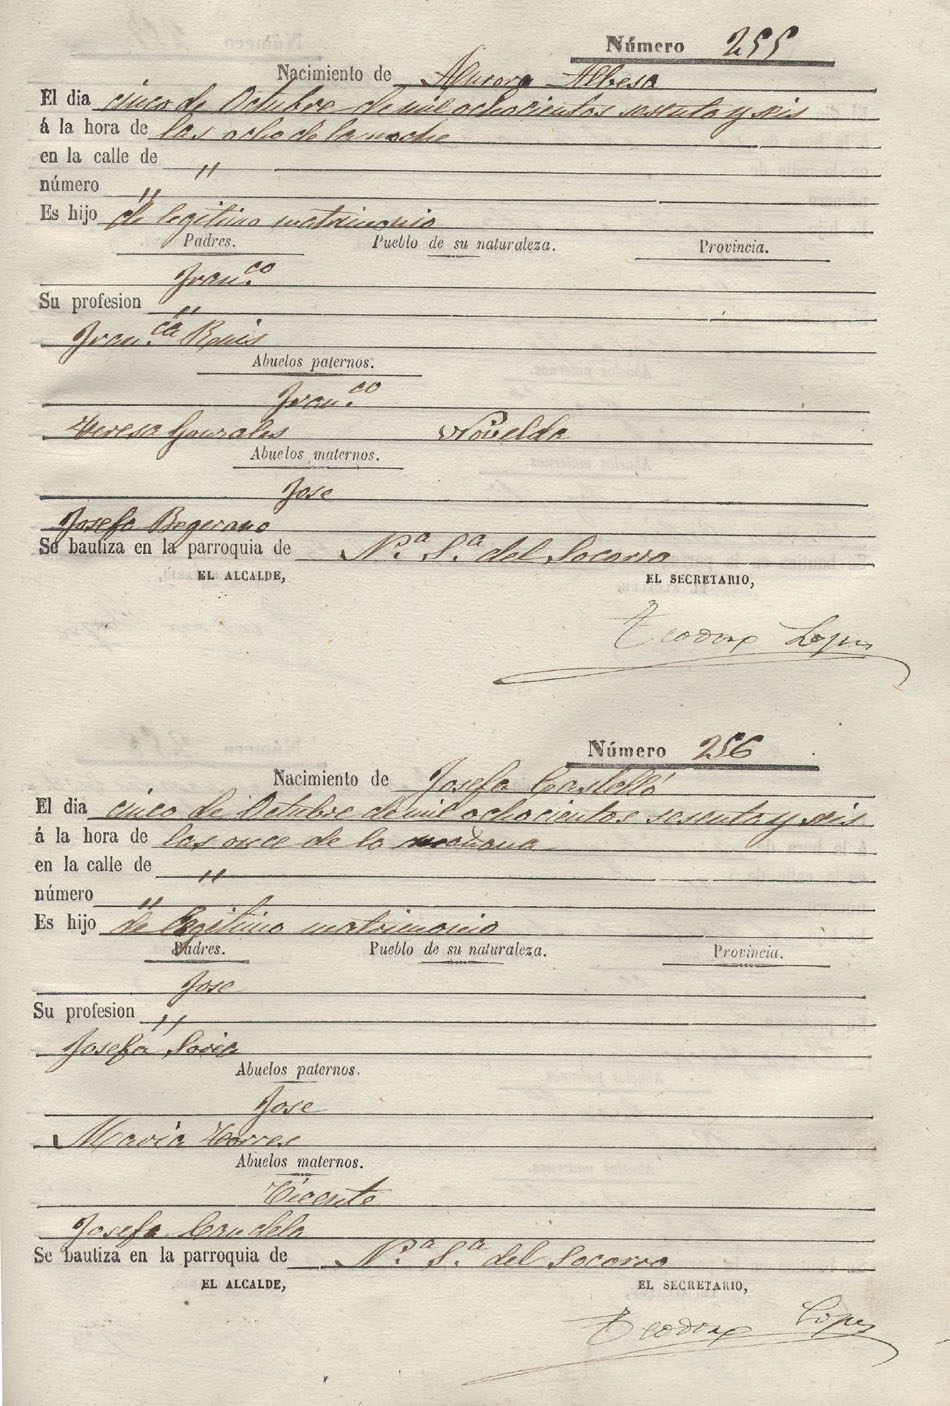 Número 255
Nacimiento de Aurora Albesa
El dia cinco de Octubre de mil ochocientos sesenta y seis
á la hora de las ocho de la noche
en la calle de "
número "
Es hijo de legitimo matrimonio
Padres. Pueblo de su naturaleza. Provincia.
Fran.co
Su profesion "
Fran.ca
Abuelos paternos.
Fran.co
Teresa Gonzales Novelda
Abuelos maternos.
Jose
Josefa Begerano
Se bautiza en la parroquia de N.a S.a del Socorro
EL ALCALDE, EL SECRETARIO,
Teodoro Lopez
Número 256
Nacimiento de Josefa Castelló
El dia cinco de Octubre de mil ochocientos sesenta y seis
á la hora de las once de la mañana
en la calle de "
número "
Es hijo de legitimo matrimonio
Padres. Pueblo de su naturaleza. Provincia.
Jose
Su profesion "
Josefa
Abuelos paternos.
Jose
Maria Torres
Abuelos maternos.
Vicente
Josefa Candela
Se bautiza en la parroquia de N.a S.a del Socorro
EL ALCALDE, EL SECRETARIO,
Teodoro Lopez